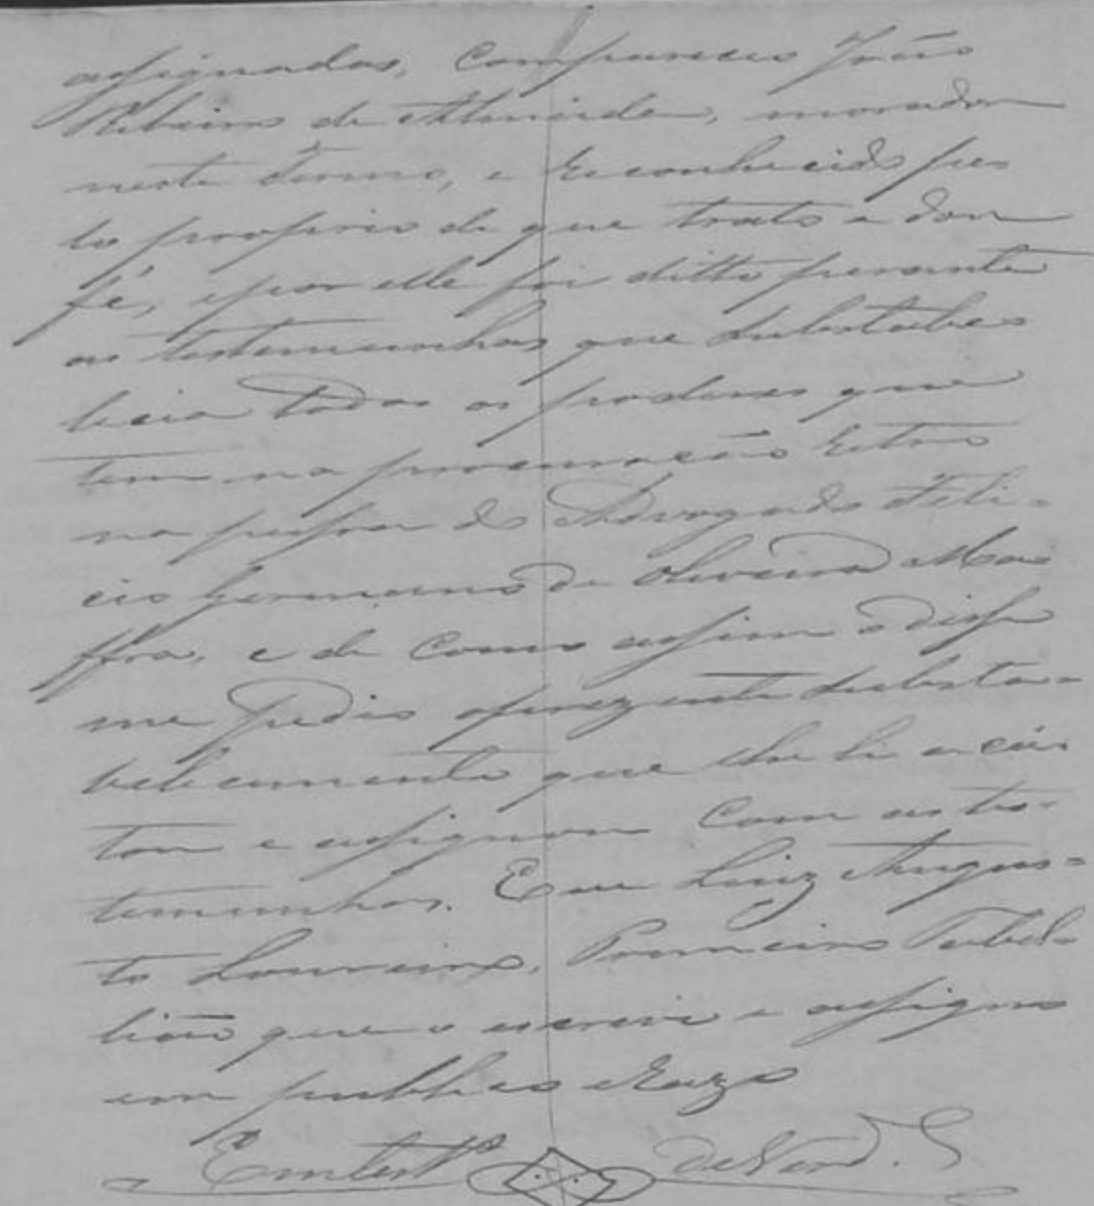 assignadas, compareceo João
Ribeiro de Almeida, morador
neste termo, e reconhecido pe
lo proprio de que trato e dou
fé, e por elle foi ditto perante
as testemunhas que substabe
lecia todos os poderes que
tem na procuração retro
na pessoa do Advogado Feli-
cio Germano de Oliveira Ma
ffra, e de como assim o disse
me pedio o prezente substa-
belecimento que lhe li acei
tou e assignou com as tes-
temunhas. Eu Luiz Augus-
to Loureiro, Primeiro Tabel-
lião que o escrevi e assigno
em publico e razo
Em testº de verd.